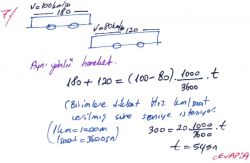 7/
V=100km/sa
180
V=80km/sa
120
Aynı yönlü hareket.
180 + 120 = (100 - 80) . 1000/3600 . t
(Birimlere dikkat Hız km/saat
verilmiş süre saniye isteniyor.
(1km = 1000m
1saat = 3600sn)
300 = 20 . 1000/3600 . t
t = 54sn
CEVAP:A